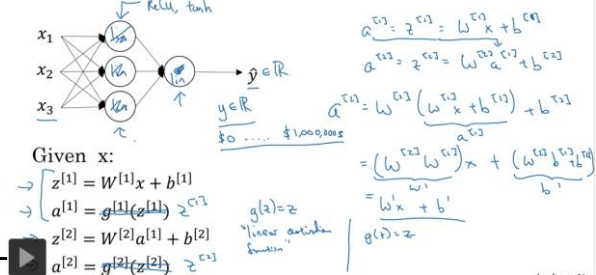 ReLU, tanh
x₁
x₂
x₃
ŷ ∈ ℝ
y ∈ ℝ
$0 ..... $1,000,000s
Given x:
z[1] = W[1]x + b[1]
a[1] = g[1](z[1]) z[1]
z[2] = W[2]a[1] + b[2]
a[2] = g[2](z[2]) z[2]
g(z) = z
"linear activation
function"
a[1] = z[1] = W[1]x + b[1]
a[2] = z[2] = W[2]a[1] + b[2]
a[2] = W[2](W[1]x + b[1]) + b[2]
a[1]
= (W[2]W[1])x + (W[2]b[1] + b[2])
W' b'
= W'x + b'
g(z) = z